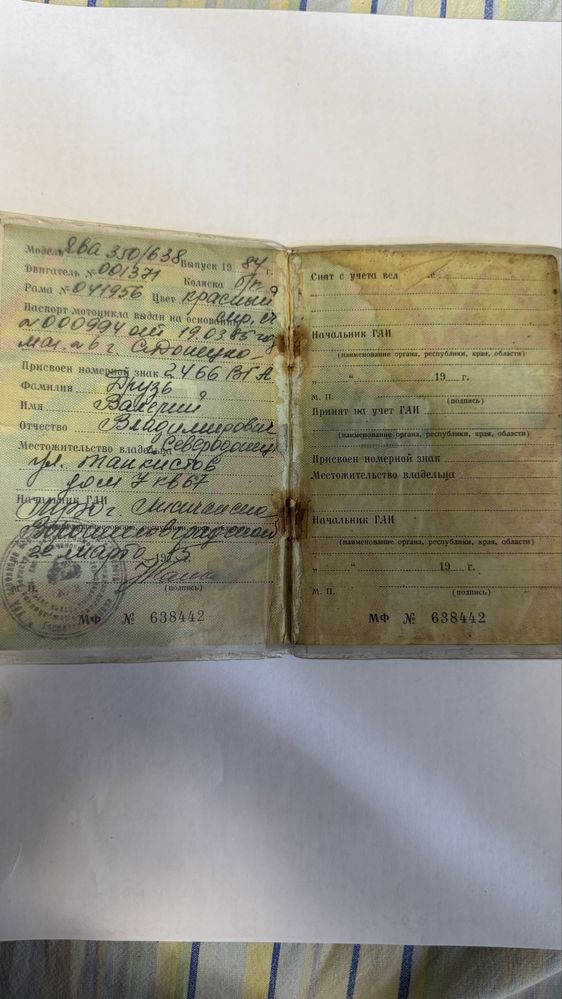 Модель Ява 350/638 Выпуск 19 84 г.
Двигатель № 001371 Коляска б/к
Рама № 041956 Цвет красный
Паспорт мотоцикла выдан на основании спр. сч
№000994 от 19.03.85 год
маг. №6 г. С.Донецка
Присвоен номерной знак 2466 ВГА
Фамилия Друзь
Имя Валерий
Отчество Владимирович
Местожительство владельца г. Северодонецк
ул. Танкистов
дом 7 кв 67
Начальник ГАИ
г. Лисичанска
Ворошиловградской
22 марта 1985
(подпись)
МФ № 638442
Снят с учета
Начальник ГАИ
(наименование органа, республики, края, области)
„ “ 19 г.
М. П. (подпись)
Принят на учет ГАИ
(наименование органа, республики, края, области)
Присвоен номерной знак
Местожительство владельца
Начальник ГАИ
(наименование органа, республики, края, области)
„ “ 19 г.
М. П. (подпись)
МФ № 638442